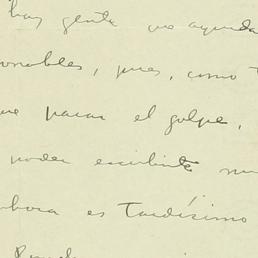 hay gente no ayuda
onables, pues, como
ue parar el golpe,
poder escribirte
ahora es tardísimo